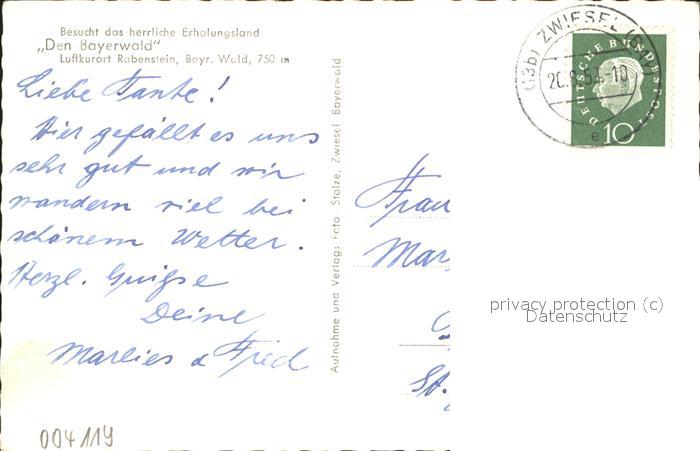 Besucht das herrliche Erholungsland
„Den Bayerwald"
Luftkurort Rabenstein, Bayr. Wald, 750 m
Liebe Tante!
Hier gefällt es uns
sehr gut und wir
wandern viel bei
schönem Wetter.
Herzl. Grüße
Deine
Marlies & Fried
004119
Aufnahme und Verlag: Foto Stolze, Zwiesel Bayerwald
(13b) ZWIESEL
e
DEUTSCHE BUNDESPOST
10
Frau
Mar
St.
privacy protection (c)
Datenschutz